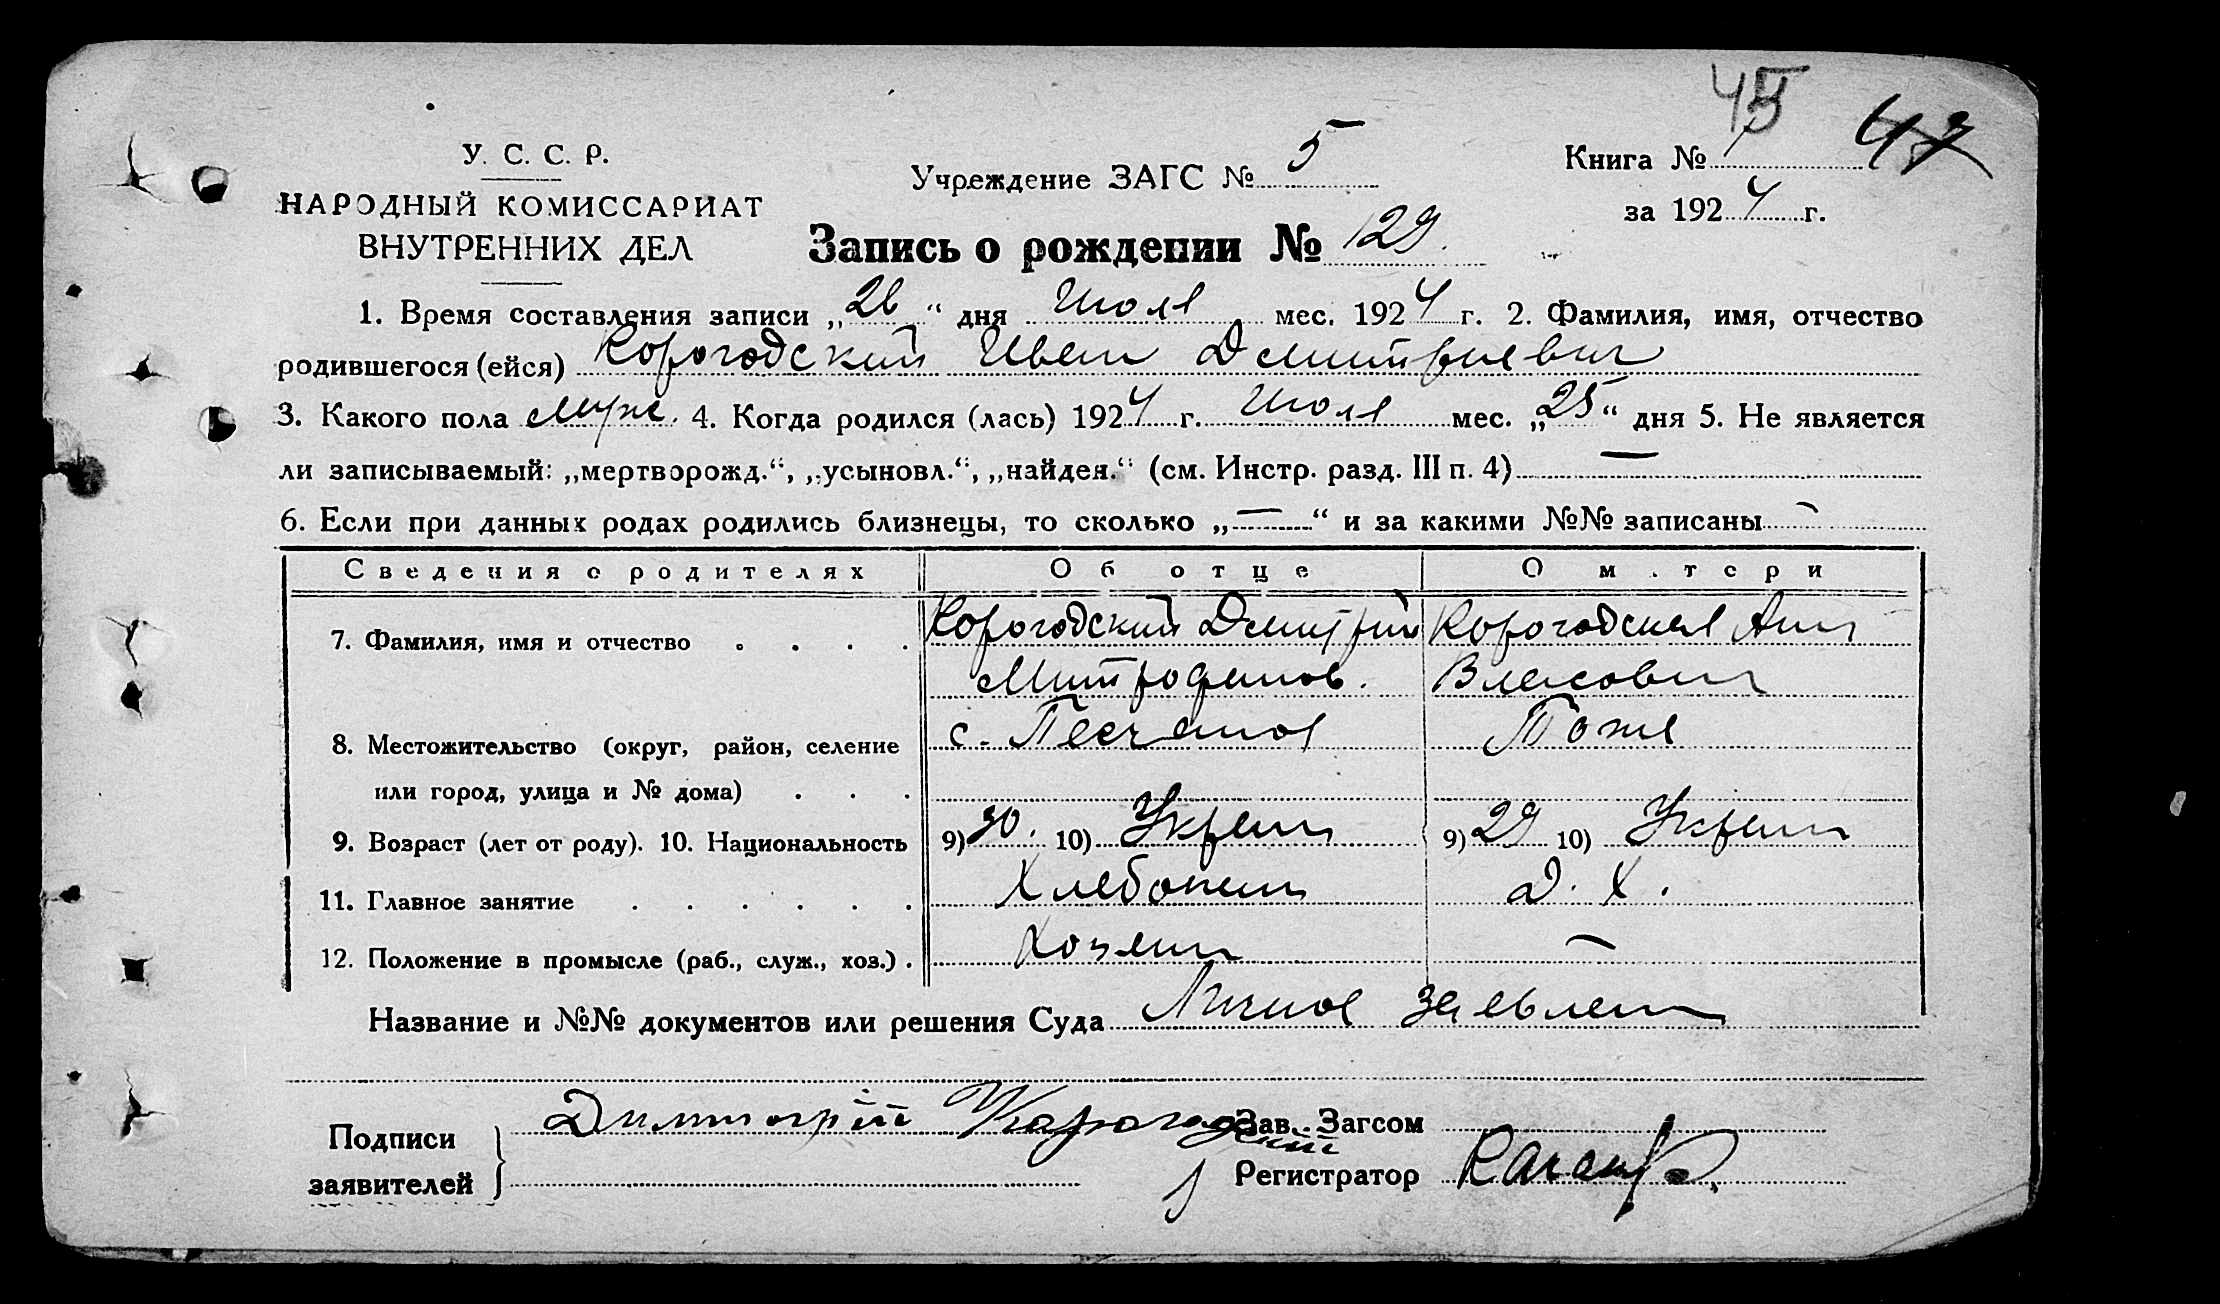 45 47
У. С. С. Р.
Учреждение ЗАГС № 5
Книга № 1
НАРОДНЫЙ КОМИССАРИАТ
за 1924 г.
ВНУТРЕННИХ ДЕЛ
Запись о рождении № 129.
1. Время составления записи „26“ дня Июля мес. 1924 г. 2. Фамилия, имя, отчество
родившегося (ейся) Корогодский Иван Дмитриевич
3. Какого пола муж. 4. Когда родился (лась) 1924 г. Июля мес. „25“ дня 5. Не является
ли записываемый: „мертворожд.“, „усыновл.“, „найден.“ (см. Инстр. разд. III п. 4) —
6. Если при данных родах родились близнецы, то сколько „—“ и за какими №№ записаны —
Сведения о родителях Об отце О матери
7. Фамилия, имя и отчество . . . . Корогодский Дмитрий Корогодская Анн
Митрофанов. Власовн
8. Местожительство (округ, район, селение с. Песчаное Тоже
или город, улица и № дома) . . .
9. Возраст (лет от роду). 10. Национальность 9) 30. 10) Украин 9) 29 10) Украин
11. Главное занятие . . . . . . Хлебопаш Д. Х.
12. Положение в промысле (раб., служ., хоз.) . Хозяин —
Название и №№ документов или решения Суда Личное заявлен
Подписи Димитрий Карагодский Зав. Загсом
заявителей Регистратор